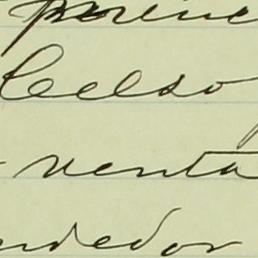 Celso
venta
ndedor